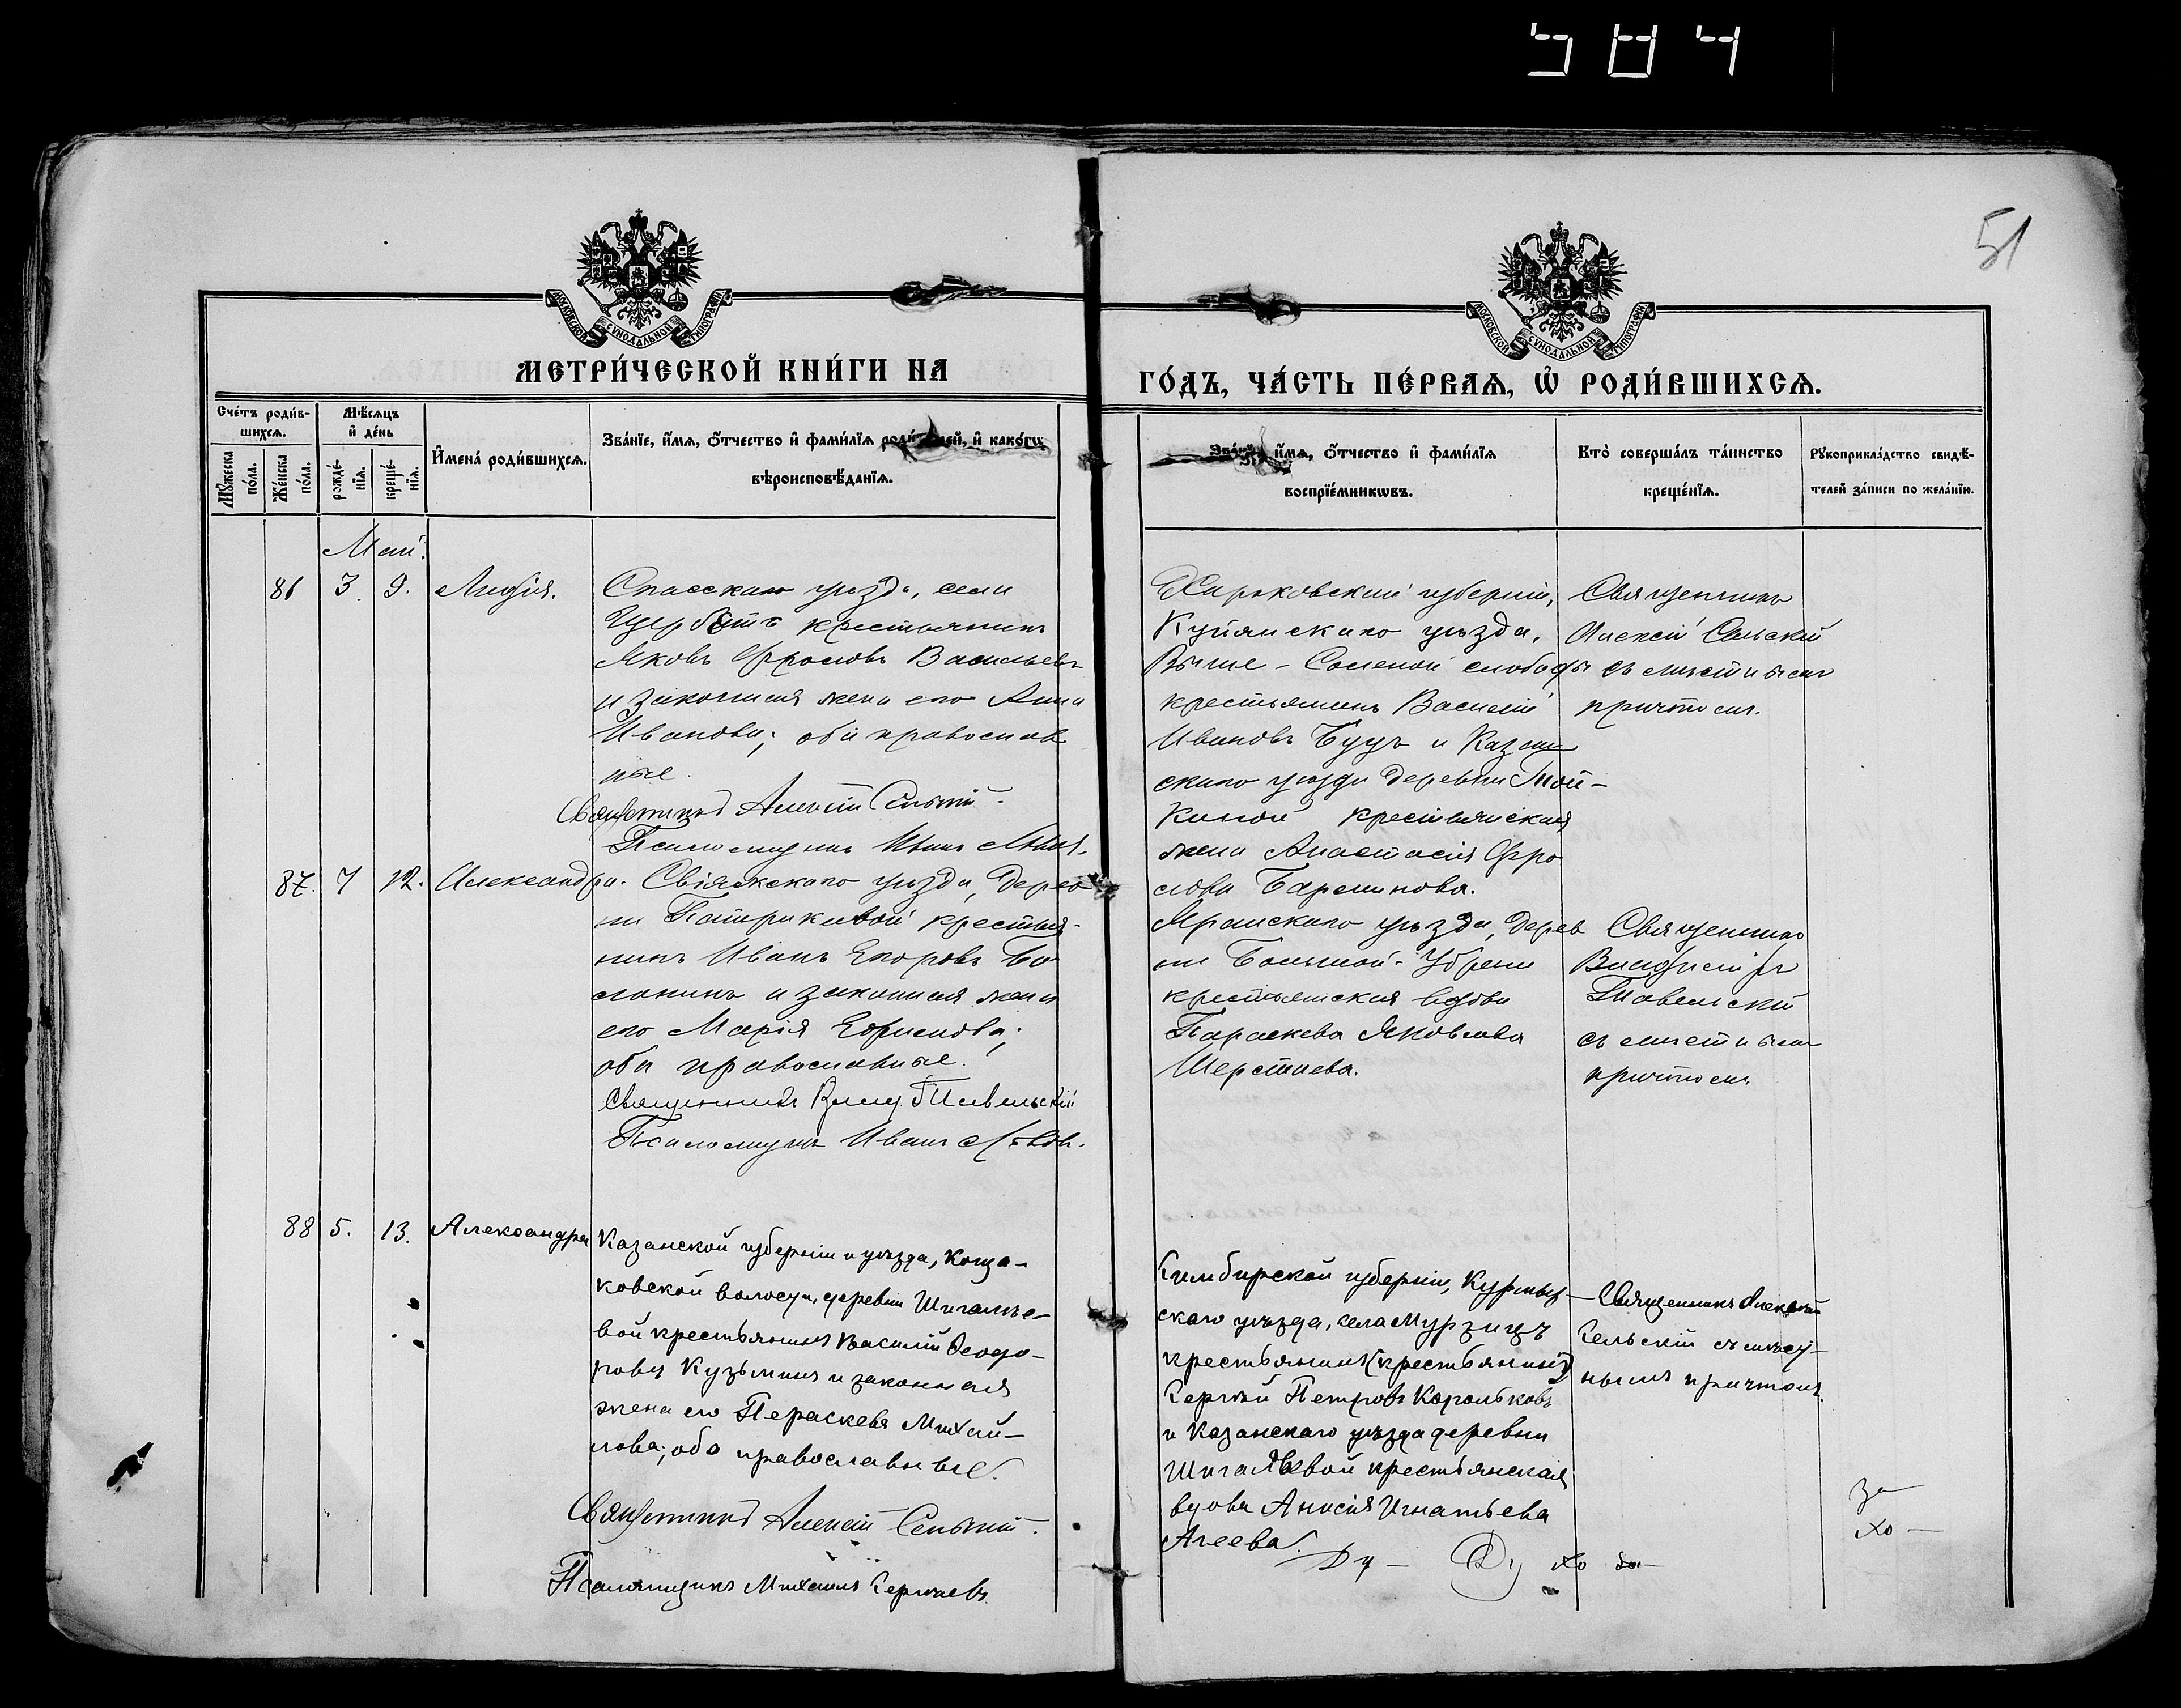 584
51
МОСКОВСКОЙ СУНОДАЛЬНОЙ ТИПОГРАФІИ
МОСКОВСКОЙ СУНОДАЛЬНОЙ ТИПОГРАФІИ
МЕТРИ́ЧЕСКОЙ КНИ́ГИ НА
ГО́ДЪ, ЧА́СТЬ ПЕ́РВАѦ, Ѡ҆ РОДИ́ВШИХСѦ.
Сче́тъ роди́в-
шихсѧ.
Мꙋ́жеска по́ла.
Же́нска по́ла.
Мѣ́сѧцъ
и҆ де́нь
рожде́-
нїѧ.
креще́-
нїѧ.
И҆мена̀ роди́вшихсѧ.
Зва́нїе, и҆́мѧ, ѻ҆́тчество и҆ фами́лїѧ роди́телей, и҆ како́гѡ
вѣроисповѣ́данїѧ.
Зва́нїе, и҆́мѧ, ѻ҆́тчество и҆ фами́лїѧ
воспрїе́мникѡвъ.
Кто̀ соверша́лъ та́инство
креще́нїѧ.
Рꙋкоприкла́дство свидѣ́-
телей за́писи по жела́нїю.
Май.
86 3. 9. Лидія.
Спасскаго уѣзда, села
Щербеть крестьянинъ
Яковъ Фроловъ Васильевъ
и законная жена его Анна
Иванова; оба православ
ные.
Священникъ Алексій Сельскій.
Псаломщикъ Иванъ
Харьковской губерніи,
Купянскаго уѣзда,
Соленой слободы
крестьянинъ Василій
Ивановъ и Казан
скаго уѣзда деревни Мой-
киной крестьянская
жена Анастасія Фро
лова
Священникъ
Алексій Сельскій
съ мѣстнымъ
причтомъ.
87. 7 12. Александра.
Свіяжскаго уѣзда, дерев
ни Патрикѣевой крестья-
нинъ Иванъ Егоровъ
и законная жена
его Марія Ефимова;
оба православные.
Священникъ Влад. Павельскій
Псаломщикъ Иванъ
Яранскаго уѣзда, дерев
ни Большой
крестьянская вдова
Параскева Яковлева
Шерстнева.
Священникъ
Владиміръ
Павельскій
съ мѣстнымъ
причтомъ.
88 5. 13. Александра
Казанской губерніи и уѣзда, Коща-
ковской волости, деревни Шигалѣе-
вой крестьянинъ Василій Ѳеодо-
ровъ Кузьминъ и законная
жена его Параскева Михай-
лова; оба православные.
Священникъ Алексій Сельскій.
Псаломщикъ Михаилъ Сергѣевъ.
Симбирской губерніи, Курмыш-
скаго уѣзда, села Мурзицъ
крестьянинъ (крестьянинъ)
Сергѣй Петровъ Корольковъ
и Казанскаго уѣзда деревни
Шигалѣевой крестьянская
вдова Анисія Игнатьева
Агеева.
Священникъ Алексій
Сельскій съ мѣст-
нымъ причтомъ.